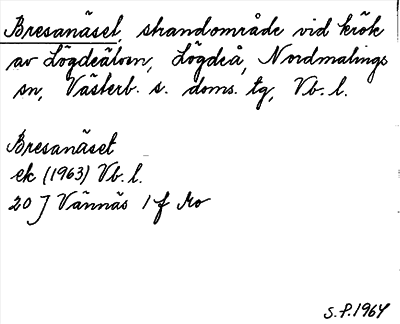 Bresanäset, strandområde vid krök
av Lögdeälven, Lögdeå, Nordmalings
sn, Västerb. s. doms. tg, Vb. l.
Bresanäset
ek (1963) Vb. l.
20 J Vännäs 1 f Mo
S.P. 1964